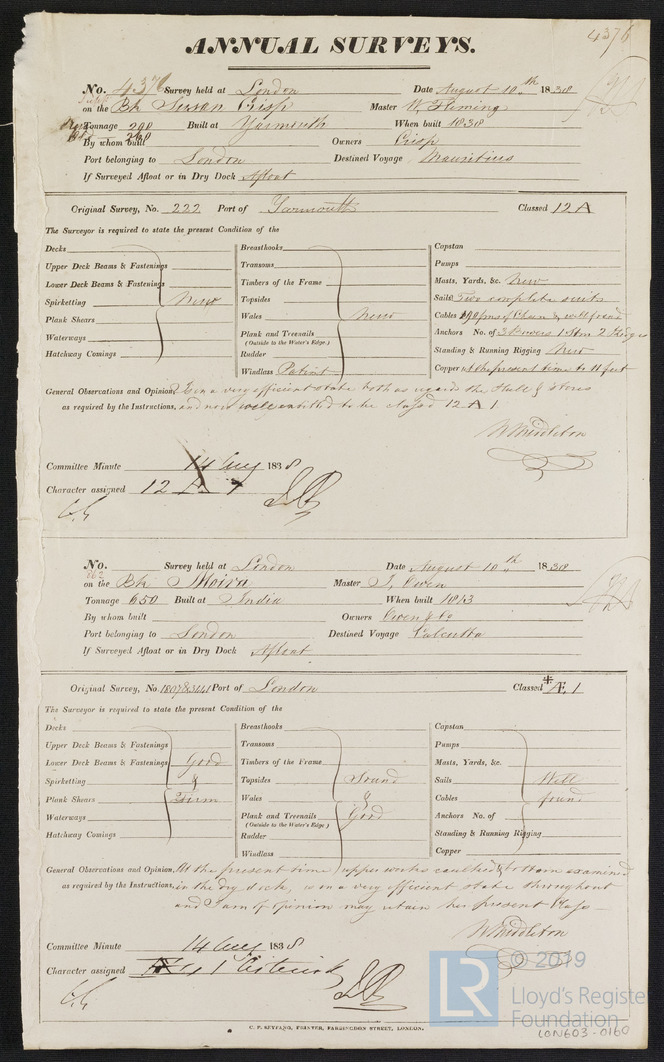 4376
ANNUAL SURVEYS.
No. 4376 Survey held at London Date August 10th 1838
on the Bk Susan Crisp Master W. Fleming
Tonnage 290 Built at Yarmouth When built 1838
260
By whom built Owners Crisp
Port belonging to London Destined Voyage Mauritius
If Surveyed Afloat or in Dry Dock Afloat
Original Survey, No. 222 Port of Yarmouth Classed 12 A
The Surveyor is required to state the present Condition of the
Decks Breasthooks Capstan
Upper Deck Beams & Fastenings Transoms Pumps
Lower Deck Beams & Fastenings Timbers of the Frame Masts, Yards, &c. New
Spirketting New Topsides Sails Two complete suits
Plank Shears Wales New Cables 190 fms of Chain & well found
Waterways Plank and Treenails Anchors No. of 3 Bowers 1 Strm 2 Kedges
(Outside to the Water's Edge.)
Hatchway Comings Rudder Standing & Running Rigging New
Windlass Patent Copper at the present time to 11 feet
General Observations and Opinion, Is in a very efficient state both as regards the Hull & Stores
as required by the Instructions, and now well entitled to be Class'd 12 A 1
W Middleton
Committee Minute 14 Aug 1838
Character assigned 12 A 1
No. Survey held at London Date August 10th 1838
863
on the Bk Moira Master J. Owen
Tonnage 650 Built at India When built 1813
By whom built Owners Owen & Co
Port belonging to London Destined Voyage Calcutta
If Surveyed Afloat or in Dry Dock Afloat
Original Survey, No. Port of London Classed * Æ 1
The Surveyor is required to state the present Condition of the
Decks Breasthooks Capstan
Upper Deck Beams & Fastenings Transoms Pumps
Lower Deck Beams & Fastenings Good Timbers of the Frame Masts, Yards, &c.
Spirketting & Topsides Sound Sails Well
Plank Shears Firm Wales & Cables found
Waterways Plank and Treenails Good Anchors No. of
(Outside to the Water's Edge.)
Hatchway Comings Rudder Standing & Running Rigging
Windlass Copper
General Observations and Opinion, At the present time upper works caulked & bottom examined
as required by the Instructions, in the dry dock, is in a very efficient state throughout
and I am of Opinion may retain her present Class
W Middleton
Committee Minute 14 Aug 1838
Character assigned Æ 1 Asterisk
C. F. SEYFANG, PRINTER, FARRINGDON STREET, LONDON.
LR © 2019
Lloyd's Register
Foundation
LON603-0160